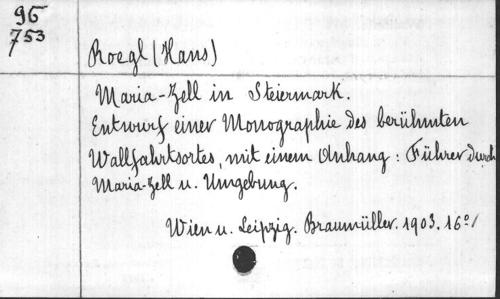 96
753
Roegl (Hans)
Maria-Zell in Steiermark.
Entwurf einer Monographie des berühmten
Wallfahrtsortes, mit einem Anhang: Führer durch
Maria-Zell u. Umgebung.
Wien u. Leipzig. Braumüller. 1903. 16°/